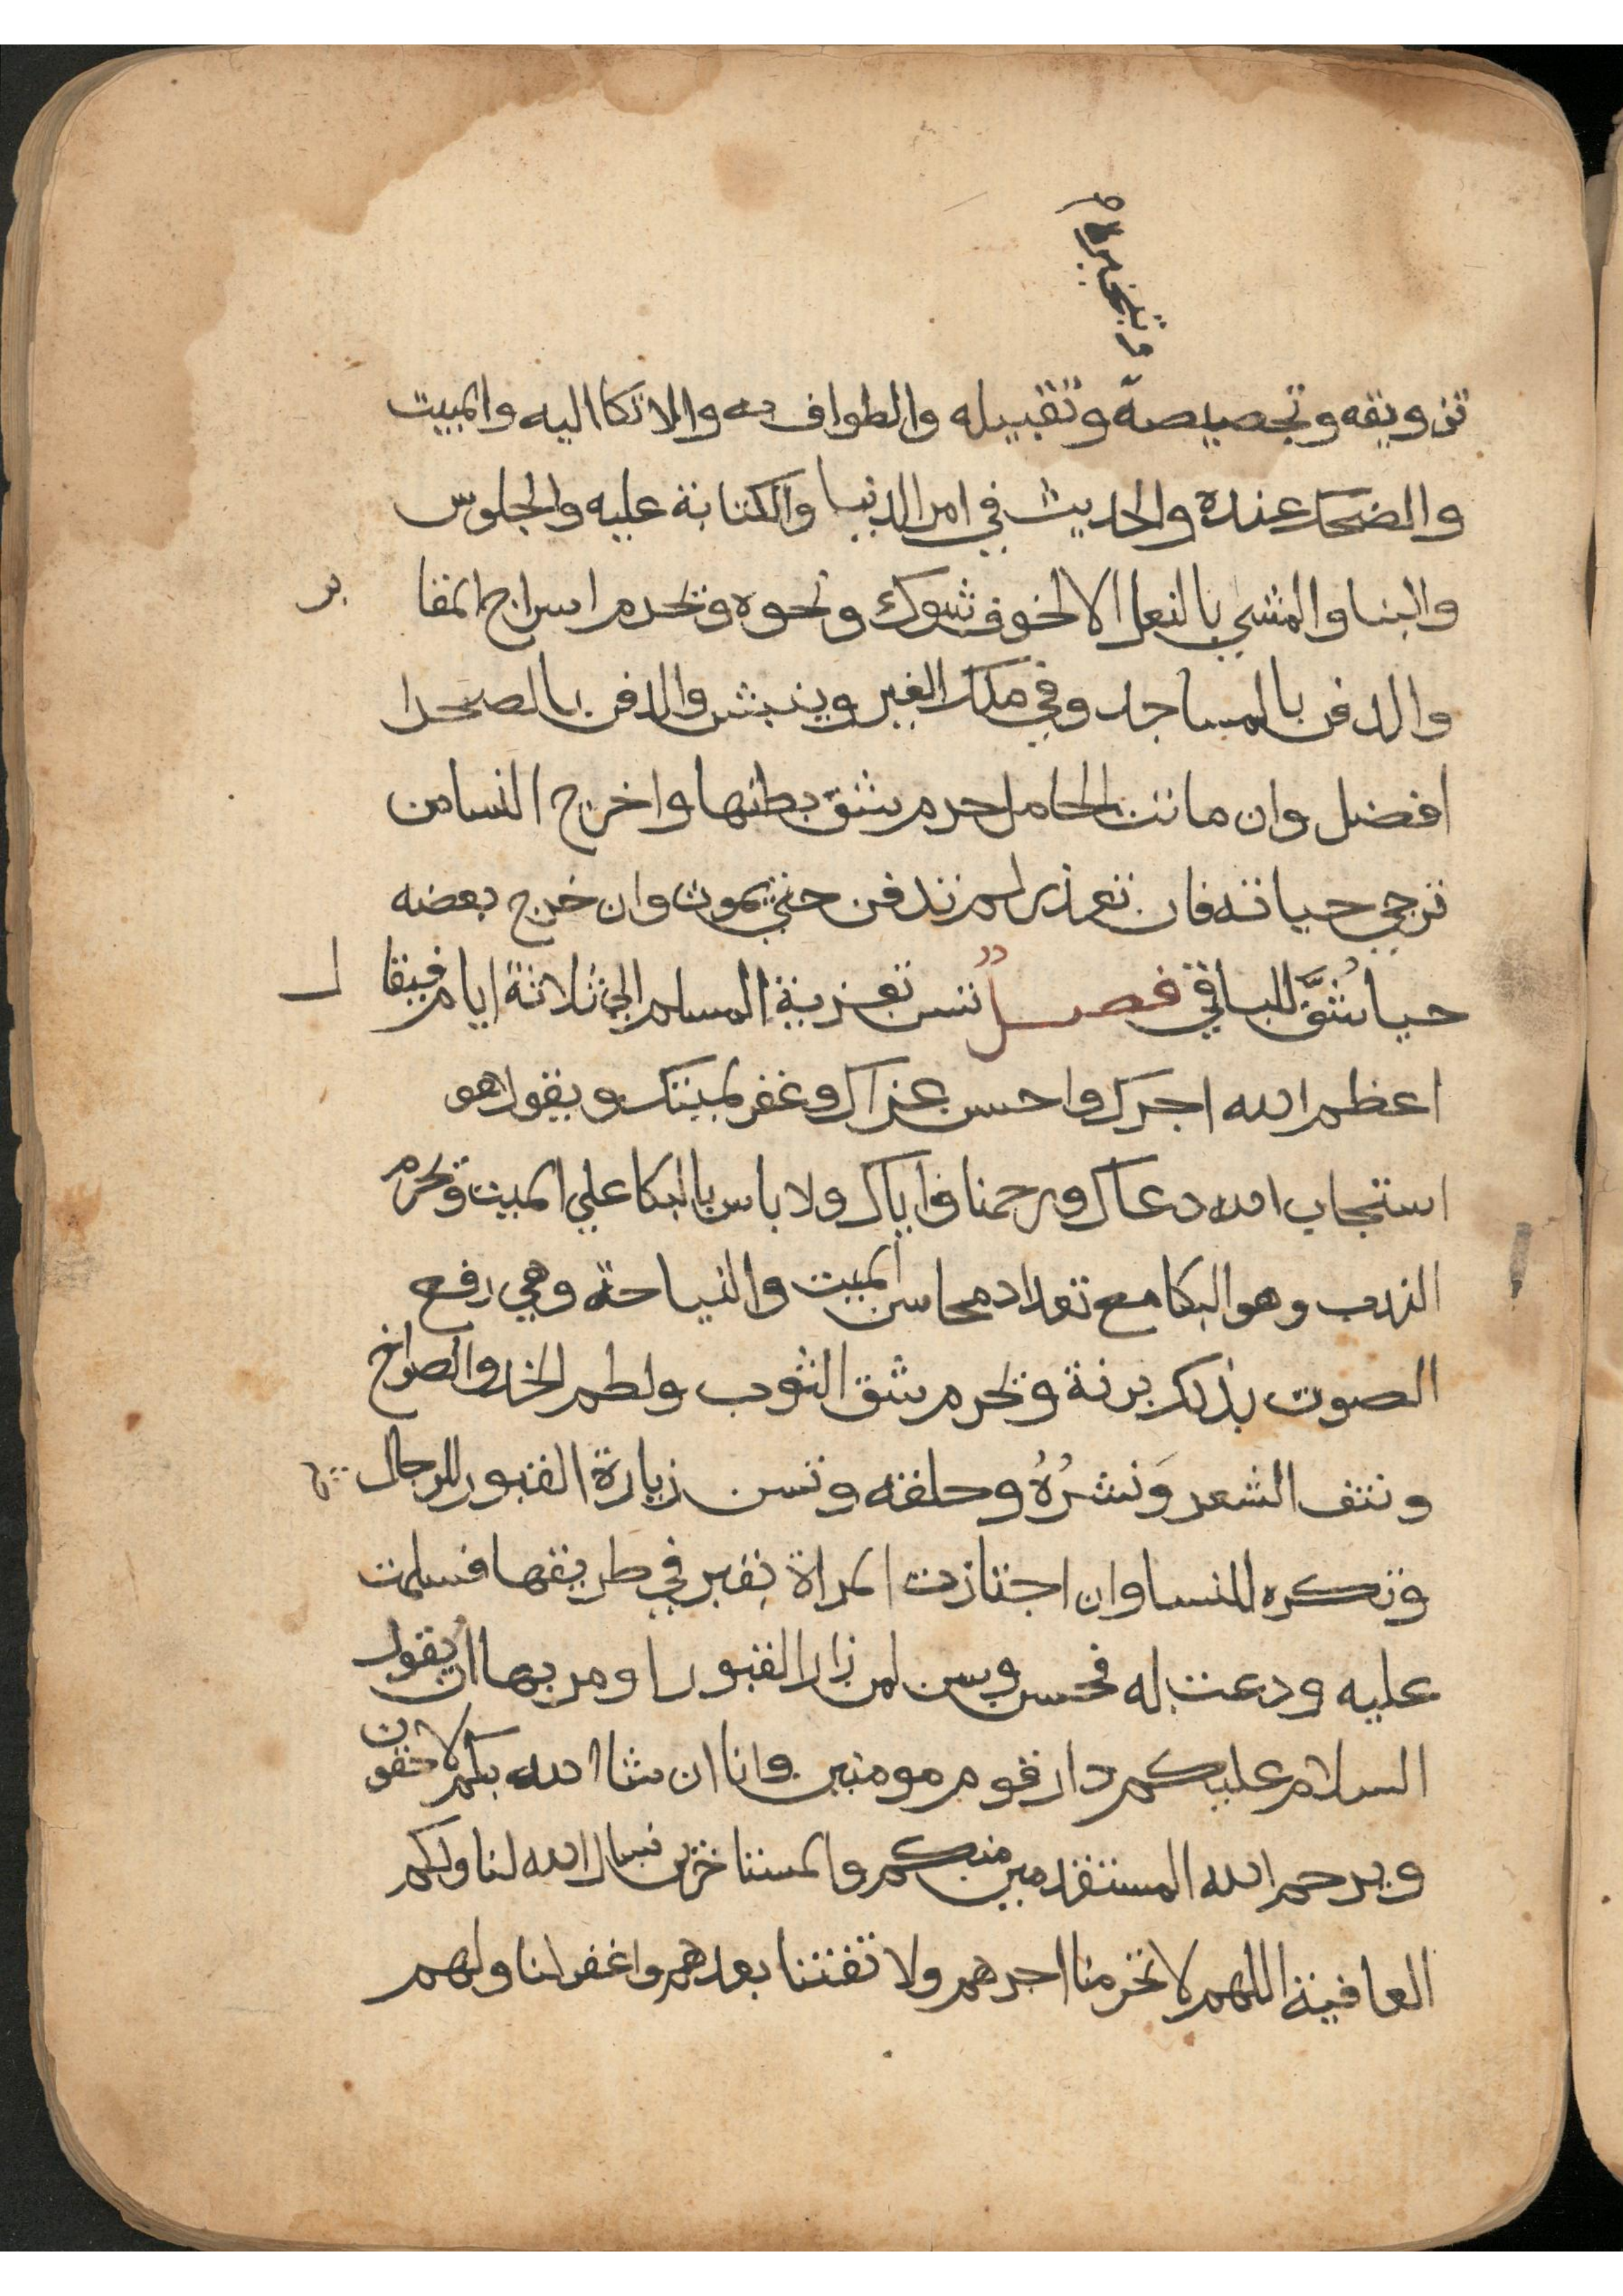 وتبخيره
تزويقه وتجصيصه وتقبيله والطواف به والاتكا اليه والمبيت
والضحك عنده والحديث في امر الدنيا والكتابة عليه والجلوس
والبنا والمشي بالنعل الا لخوف شوك ونحوه وتحرم اسراج المقا بر
والدفن بالمساجد وفي ملك الغير وينبش والدفن بالصحرا
افضل وان ماتت الحامل حرم شق بطنها واخرج النسا من
ترجي حياته فان تعذر لم تدفن حتي يموت وان خرج بعضه
حيا شُقَّ للباقي فصل تسن تعزية المسلم الي ثلاثة ايام فيقا ل
اعظم الله اجرك واحسن عزاك وغفر لميتك ويقول هو
استجاب الله دعاك ورحمنا واياك ولا باس بالبكا علي الميت وتحرم
الندب وهو البكا مع تعداد محاسن الميت والنياحة وهي رفع
الصوت بذلك برنة وتحرم شق الثوب ولطم الخد والصراخ
ونتف الشعر وَنشرُهُ وحلقه وتسن زيارة القبور للرجال
وتكره للنسا وان اجتازت المراة بقبر في طريقها فسلمت
عليه ودعت له فحسن ويسن لمن زار القبور او مر بها ان يقول
السلام عليكم دار قوم مومنين وانا ان شا الله بكم لاحقون
ويرحم الله المستقدمين منكم والمستاخرين نسال الله لنا ولكم
العافية اللهم لا تحرمنا اجرهم ولا تفتنا بعدهم واغفر لنا ولهم